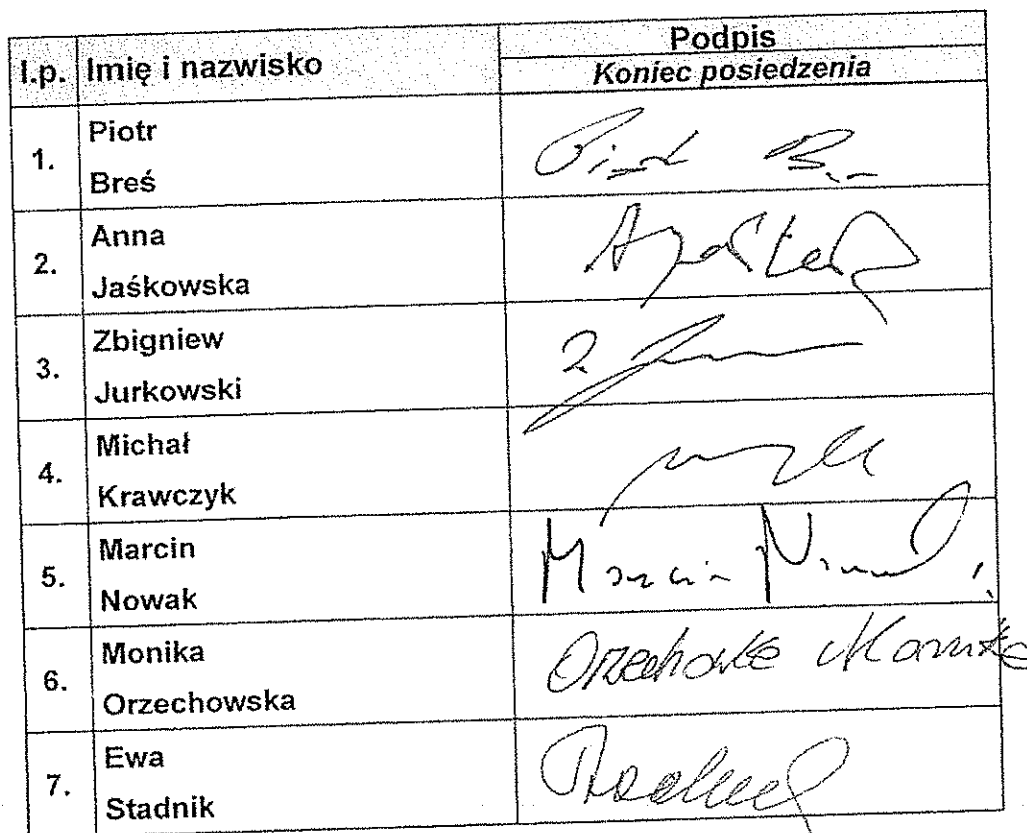 l.p. Imię i nazwisko Podpis
Koniec posiedzenia
1. Piotr
Breś
Piotr
2. Anna
Jaśkowska
3. Zbigniew
Jurkowski
4. Michał
Krawczyk
5. Marcin
Nowak
Marcin Nowak
6. Monika
Orzechowska
Orzechowska Monika
7. Ewa
Stadnik